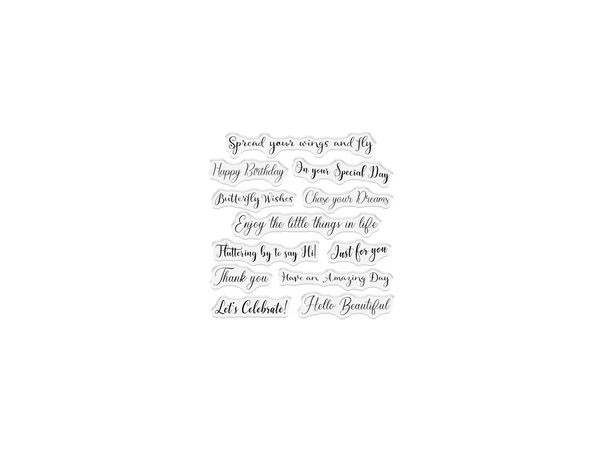 Spread your wings and fly
Happy Birthday
On your Special Day
Butterfly Wishes
Chase your Dreams
Enjoy the little things in life
Fluttering by to say Hi!
Just for you
Thank you
Have an Amazing Day
Let's Celebrate!
Hello Beautiful